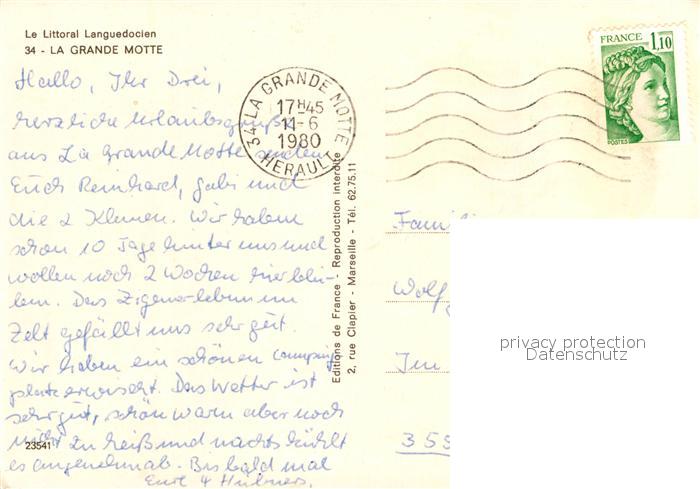 Le Littoral Languedocien
34 - LA GRANDE MOTTE
Hallo, Ihr Drei,
herzliche Urlaubsgrüße
aus La Grande Motte senden
Euch Reinhard, Gabi und
die 2 Kleinen. Wir haben
schon 10 Tage hinter uns und
wollen noch 2 Wochen hierblei-
ben. Das Zigeunerleben im
Zelt gefällt uns sehr gut.
Wir haben ein schönen Camping
platz erwischt. Das Wetter ist
sehr gut, schön warm aber noch
nicht zu heiß und nachts kühlt
es angenehm ab. Bis bald mal
Eure 4 Hübners.
23541
34-LA GRANDE MOTTE
17H45
11-6
1980
HERAULT
Editions de France - Reproduction interdite
2, rue Clapier - Marseille - Tél. 62.75.11
FRANCE 1,10
POSTES
Famili
Wolfg
Im
355
privacy protection
Datenschutz